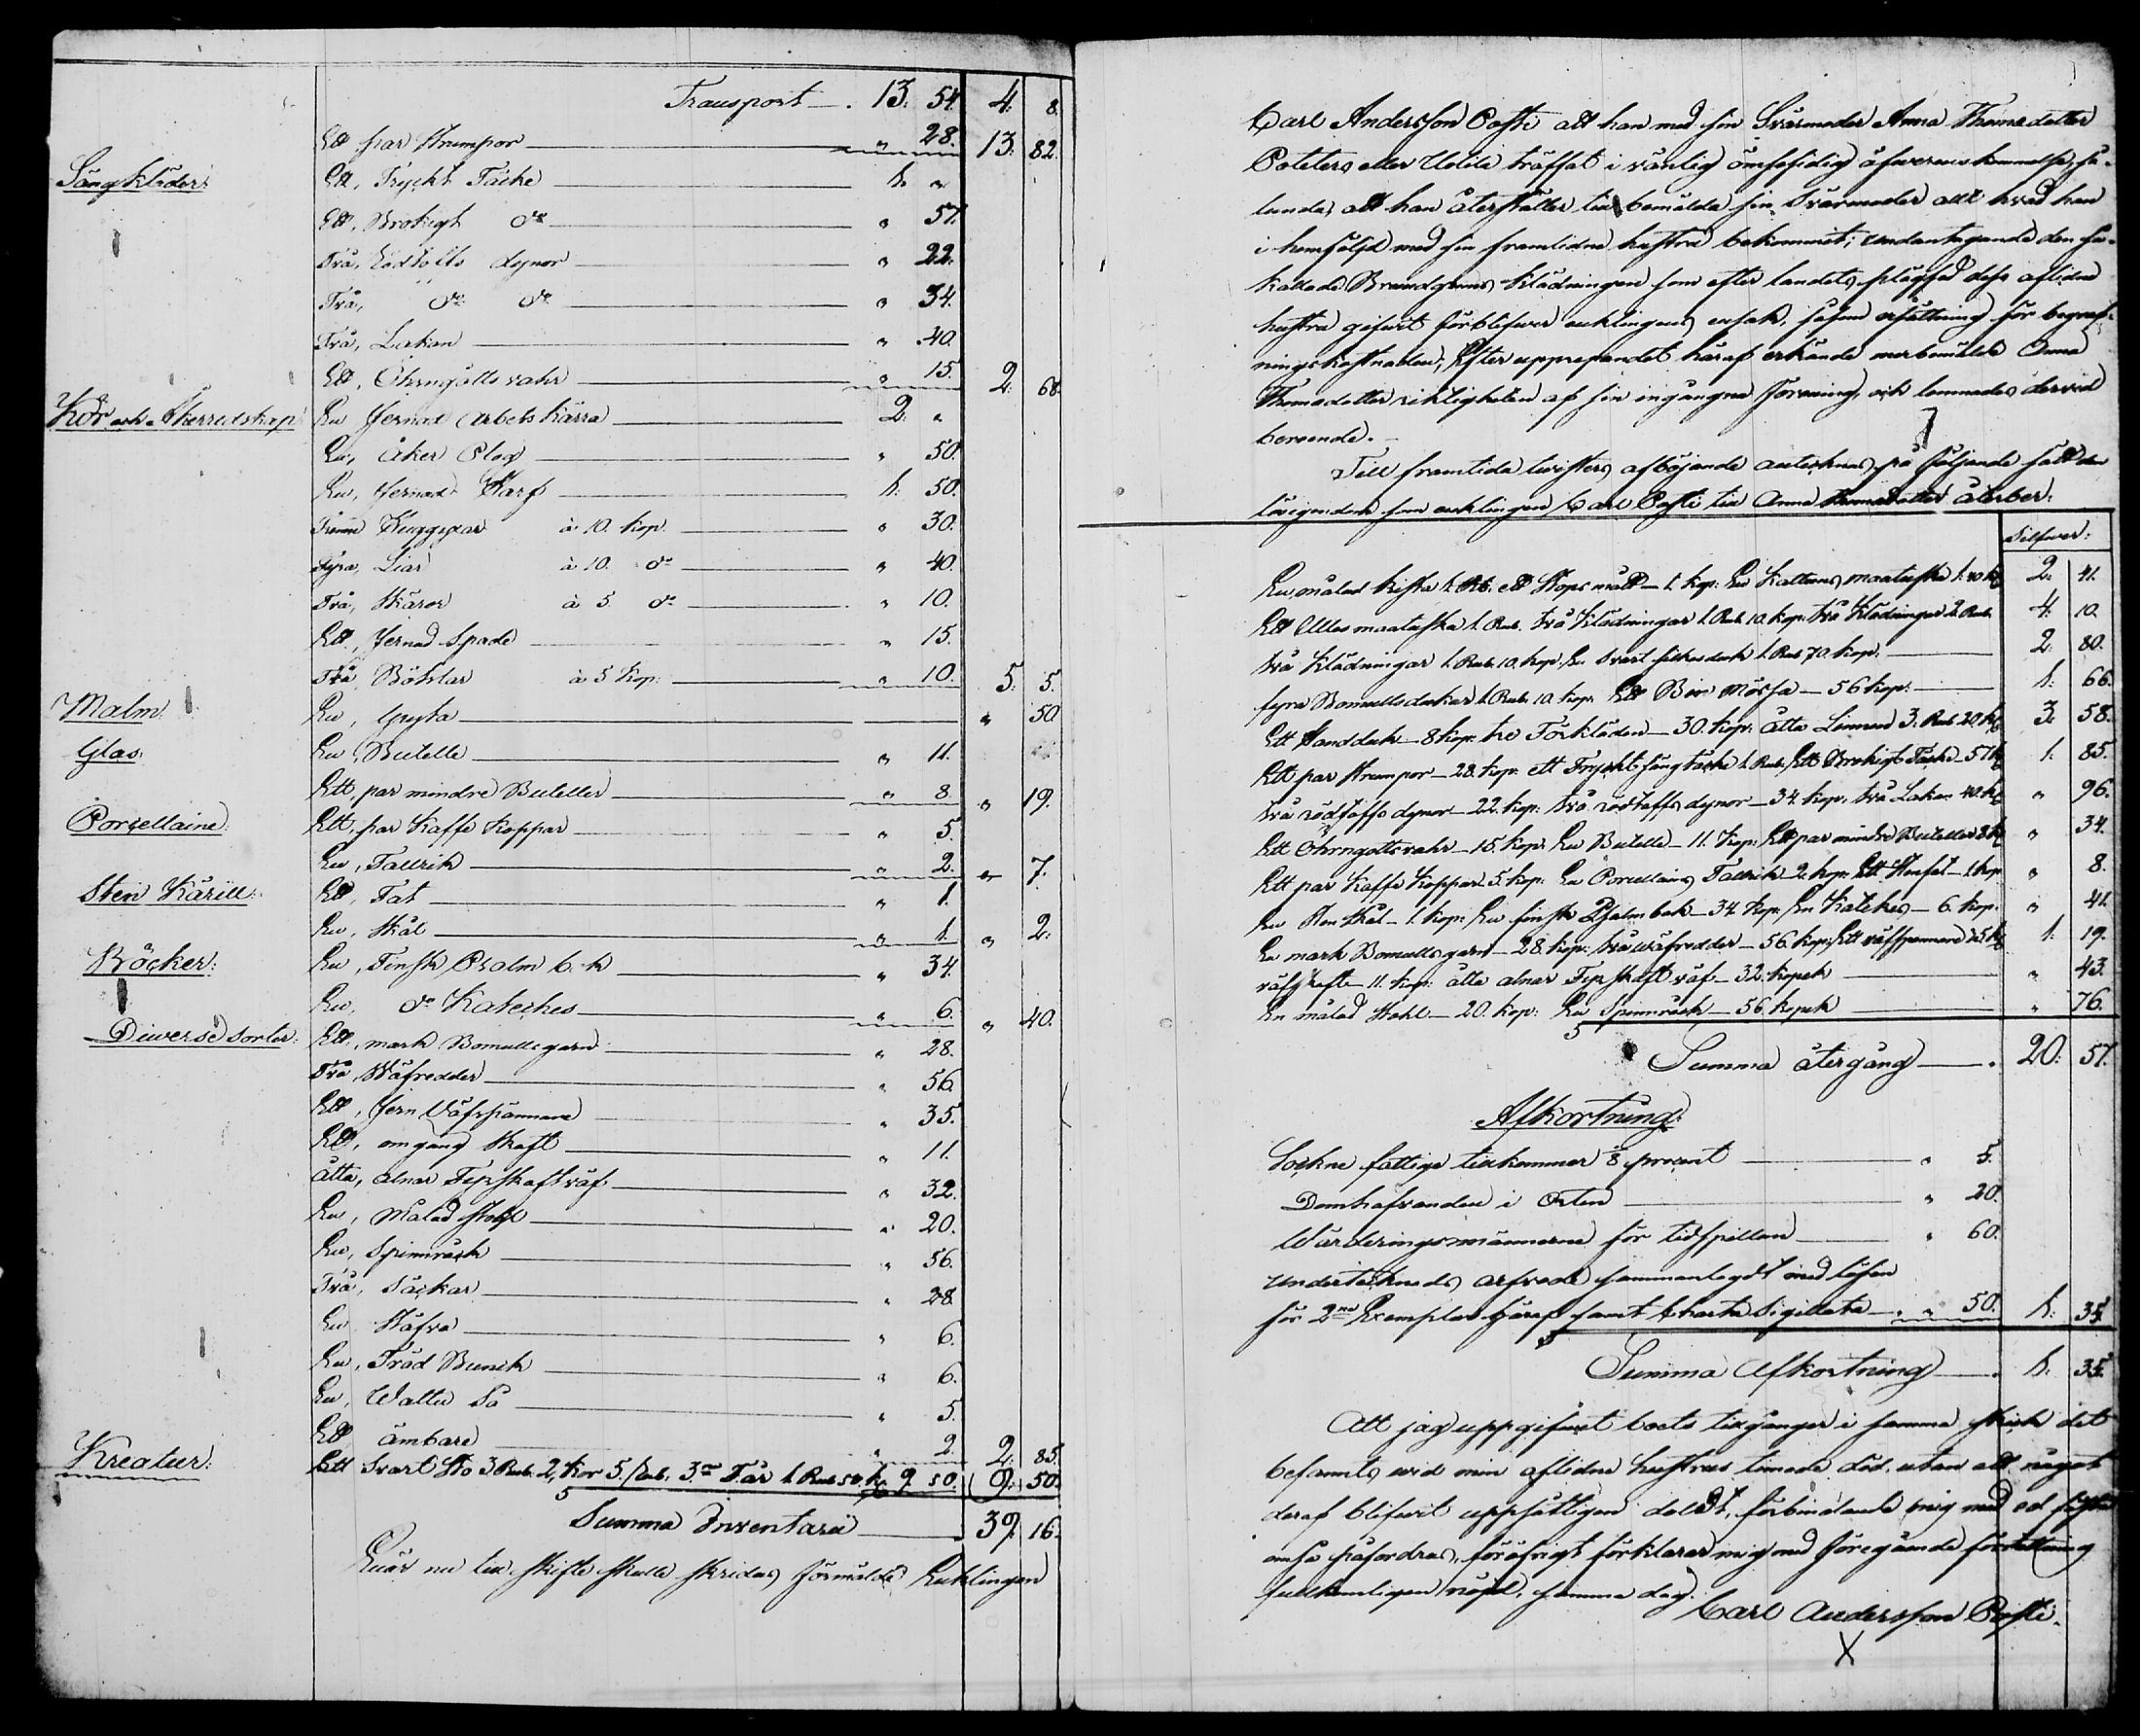 Transport — . 13. 54. 4. 8.
Ett par Strumpor — " 28. 13. 82.
Sängkläder: Ett, Tryckt Täcke — 1. "
Ett, Brokigt do — " 57.
Två, dynor — " 22.
Två, do do — " 34.
Två, Lakan — " 40.
Ett, Öhrngåttsvahr — " 15. 2. 68.
Kör och Åkerredskap En Jernad Arbets Kärra — 2. "
En, Åker Plog — " 50.
En, Jernad Harf — 1. 50.
Trenne Huggyxar à 10. kop. — " 30.
Fyra, Liar à 10. do — " 40.
Två, Skäror à 5 do — " 10.
Ett, Jernad Spade — " 15.
Två à 5 Kop: — " 10. 5. 5.
Malm: En, Gryta — " 50
Glas: En, Butelle — " 11.
Ett, par mindre Buteller — " 8 " 19.
Porcellaine: Ett, par Kaffe Koppar — " 5.
En, Tallrik — " 2. " 7.
Sten Kärill: Ett, Fat — " 1.
En, Skål — " 1. " 2.
Böcker: En, Finsk Psalm bok — " 34.
En, do Kateches — " 6. " 40.
Diverse sorter: Ett, mark Bomullsgarn — " 28.
Två Wäfredder — " 56
Ett, Jern Wäfspännare — " 35.
Ett, omgång Skaft — " 11.
Åtta, alnar Fyrskaftväf — " 32.
En, Målad Stohl — " 20.
En, Spinnråck — " 56.
Två, Säckar — " 28
En — " 6.
En, Träd Bunck — " 6.
En, Wattu Så — " 5.
Ett ämbare — " 2. 2. 85.
Kreatur: Ett Svart Sto 3 Rub. 2, Kor 5. Rub. 3ne Får 1. Rub 50 k. 9. 50. 9. 50.
Summa Inventarii — 39. 16.
nu till skifte skulle skridas förmälde Enklingen
Carl Andersson Posti att han med sin Svärmoder Anna Thomedotter
eller träffat i vänlig ömsesidig öfwerenskommelse, så-
lunda, att han återställer till bemälda sin Svärmoder allt hvad han
i hemföljd med sin framlidna hustru bekommit; undantagande den så
kallade Brudgums Klädningen som efter landets plägsed dess aflidna
hustru gifwit förblifwer enklingens ensak, såsom ersättning för begraf-
ningskostnaden; Efter upprepandet häraf erkände merbemälde Anna
Thomedotter riktigheten af sin ingångna förening, och lemnades dervid
beroende. —
Till framtida twisters afböjande antecknas på följande sätt den
lösegendom som enklingen Carl Posti till Anna Thomedotter återbär:
Silfwer:
En, målad Kista 1. Rb. ett Stops mått — 1. kop: En Kattuns maatuska 1. 40 k. 2. 41.
Ett Ulles maatuska 1. Rub. två Klädningar 1. Rub 10. kop: två Klädningar 2. Rub. 4. 10.
två Klädningar 1. Rub. 10. kop: En Svart silkesduk 1. Rub 70. kop: — 2. 80.
fyra Bomullsdukar 1. Rub. 10. kop: Ett Mössa — 56 kop: — 1. 66.
Ett Handduk — 8 kop: tre Förkläden — 30. kop: åtta Linnen 3. Rub 20 k. 3. 58.
Ett par Strumpor — 28. kop: ett Tryckt sängtäcke 1. Rub. Ett Brokigt Täcke — 57 k. 1. 85.
två dynor — 22. kop: två dynor — 34. kop: två Lakan 40. k. " 96.
Ett Öhrngottsvahr — 15. kop: En Butelle — 11. Kop: Ett par mindre Buteller 8 k. " 34.
Ett par Kaffe Koppar 5. kop: En Porcellains Tallrik — 2. kop: Ett Stenfat — 1. kop " 8.
En Sten Skål — 1. kop: En finsk Psalmbok — 34. Kop: En Kateches — 6. kop: " 41.
En mark Bomullsgarn — 28. kop: två wäfredder — 56. kop: Ett väfspännare 35 k. 1. 19.
väfskaft — 11. kop: åtta alnar Fyrskaft väf — 32. kopek — " 43.
En målad Stohl — 20. kop: En Spinnråck — 56 kopek — " 76.
Summa återgång — . 20. 57.
Afkortning:
Sockne fattige tillkommer ⅛ procent — " 5.
Domhafvanden i Orten — " 20.
Wärderingsmännerna för tidspillan — " 60.
undertecknads arfvode sammanlagdt med lösen
för 2ne Exemplar häraf samt Charta Sigillata — " 50. 1. 35.
Summa Afkortning — . 1. 35.
Att jag uppgifwit boets tillgångar i samma skick det
befunnits wid min aflidna hustrus timade död, utan att något
deraf blifwit uppsåtligen doldt, förbindande mig med ed fästa
om så påfordras, föröfrigt förklarar mig med föregående förrättning
fullkomligen nöjd, samma dag.
Carl Andersson Posti.
X